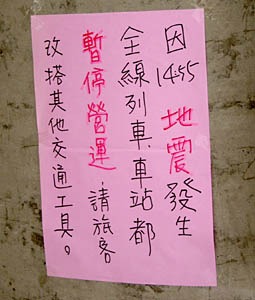 因14:55地震發生
全線列車,車站都
暫停營運,請旅客
改搭其他交通工具。